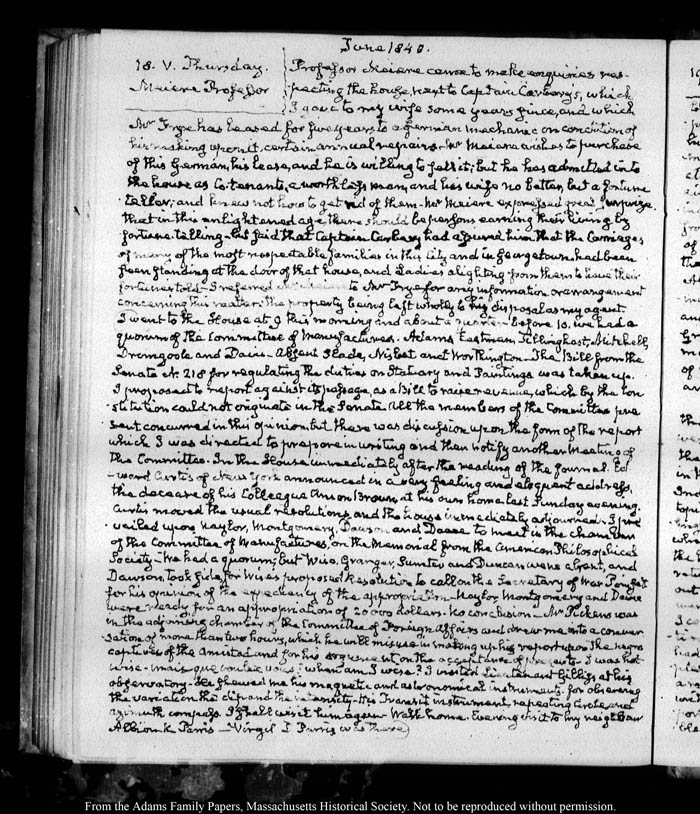 June 1840.
18. V. Thursday.
Meiere Professor
Professor Meiere came to make enquiries res-
pecting the house, next to Captain Carbery's, which
I gave to my wife some years since, and which
Mr Frye has leased for five years to a German mechanic on condition of
his making upon it, certain annual repairs. Mr Meiere wishes to purchase
of this German, his lease, and he is willing to sell it; but he has admitted into
the house as Co-tenants, a worthless man, and his wife no better, but a fortune
teller; and knew not how to get rid of them. Mr Meiere expressed great surprize
that in this enlightened age there should be persons earning their living by
fortune-telling—but said that Captain Carbery had assured him that the Carriages
of many of the most respectable families in this City and in Georgetown had been
seen standing at the door of that house, and Ladies alighting from them to have their
fortunes told— I referred Mr Meiere to Mr Frye for any information or arrangement
concerning this matter: the property being left wholly to his disposal as my agent.
I went to the House at 9 this morning and about a quarter before 10. we had a
quorum of the Committee of Manufactures. Adams Eastman Tillinghast, Mitchell,
Dromgoole and Davis. Absent Slade, Nisbet and Worthington— The Bill from the
Senate N. 218 for regulating the duties on Statuary and Paintings was taken up.
I proposed to report against its passage, as a Bill to raise revenue, which by the Con
stitution could not originate in the Senate. All the members of the Committee pre
sent concurred in this opinion, but there was discussion upon the form of the report
which I was directed to prepare in writing and then notify another Meeting of
the Committee. In the House immediately after the reading of the Journal. Ed
-ward Curtis of New York announced in a very feeling and eloquent address,
the decease of his Colleague Anson Brown, at his own home last Sunday evening.
Curtis moved the usual resolutions, and the house immediately adjourned. I pre
vailed upon Naylor, Montgomery, Dawson and Davee to meet in the chamber
of the Committee of Manufactures, on the Memorial from the American Philosophical
Society— We had a quorum; but Wise, Granger, Sumter and Duncan were absent, and
Dawson took side, for Wise's proposed Resolution to call on the Secretary of War Poinsett
for his opinion of the expediency of the appropriation— Naylor, Montgomery and Davee
were ready for an appropriation of 20000 dollars. No conclusion— Mr Pickens was
in the adjoining chamber of the Committee of Foreign Affairs and drew me into a conver
sation of more than two hours, which he will misuse in making up his report upon the Negro
captives of the Amistad and for his argument on the acceptance of presents. I was not
wise— mais que voulez vous? when am I wise? I visited Lieutenant Gilliss at his
observatory. He shewed me his magnetic and astronomical instruments. for observing
the variation the dip and the intensity. His Transit instrument, repeating Circle and
azimuth compass. I shall visit him again. Walk home. Evening visit to my neighbour
Albion K Parris— Virgil D Parris was there
From the Adams Family Papers, Massachusetts Historical Society. Not to be reproduced without permission.